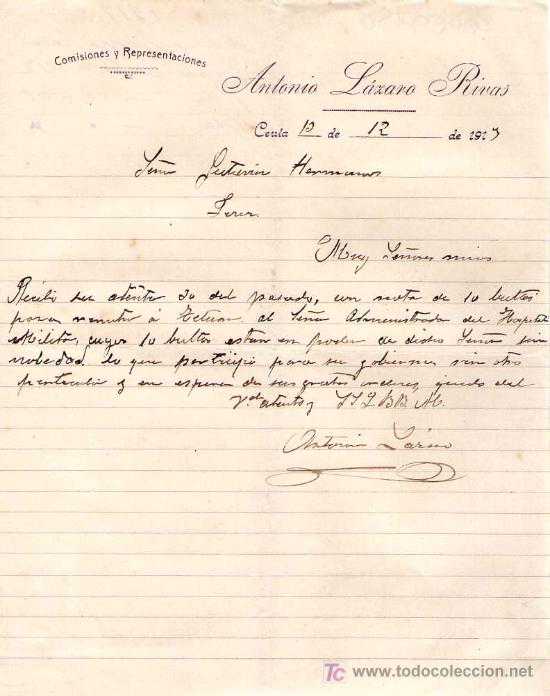 Comisiones y Representaciones
Antonio Lázaro Rivas
Ceuta 13 de 12 de 1913
Señor Gutiérrez Hermanos
Jerez.
Muy Señores mios
Recibi su atenta 30 del pasado, con nota de 10 bultos
para remitir á Tetuan al Señor Administrador del Hospital
Militar, cuyos 10 bultos estan en poder de dicho Señor sin
nobedad, lo que participo para su gobierno, sin otro
particular y en espera de sus gratas ordenes, quedo del
Vd atento y SSQBBM.
Antonio Lázaro
TC www.todocoleccion.net